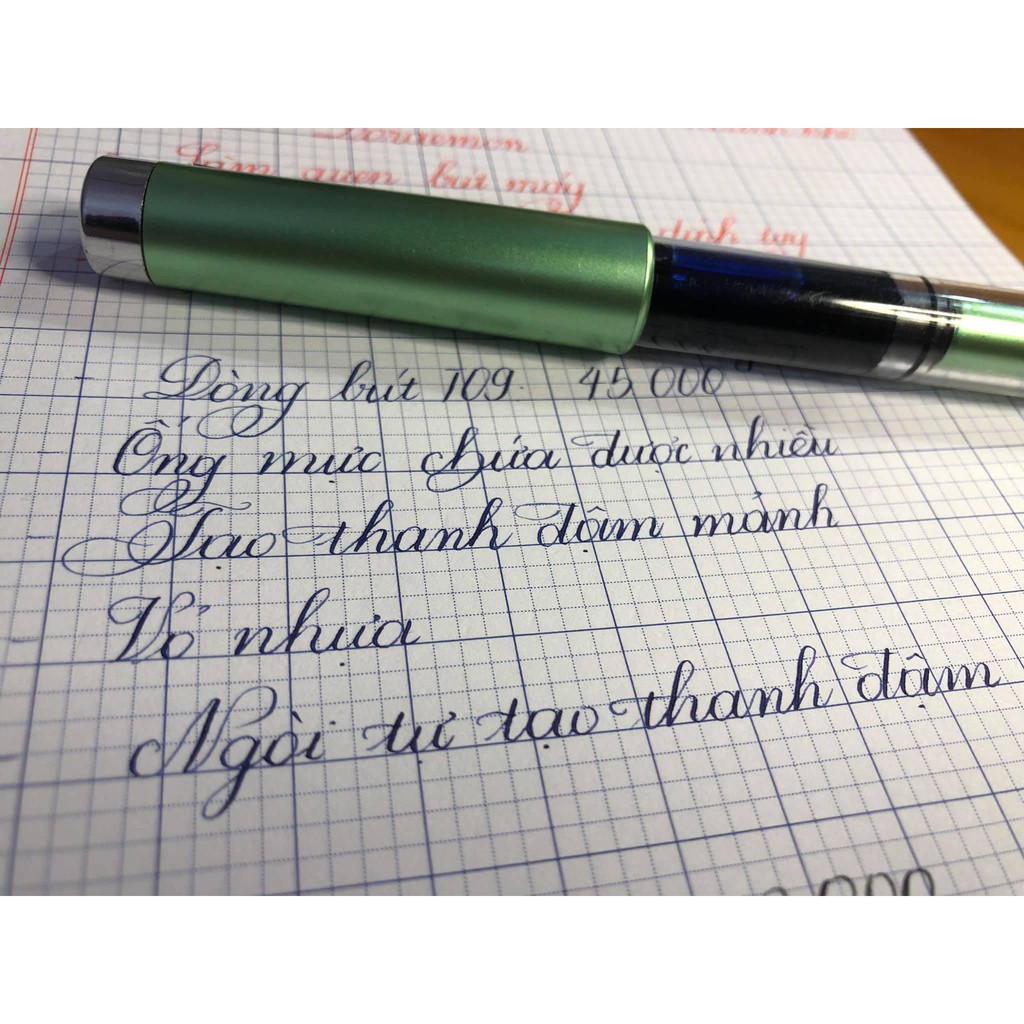 Doraemon
Làm quen bút máy
dính tay
- Dòng bút 109. 45.000đ
- Ống mực chứa được nhiều
- Tạo thanh đậm mảnh
- Vỏ nhựa
Ngòi tự tạo thanh đậm